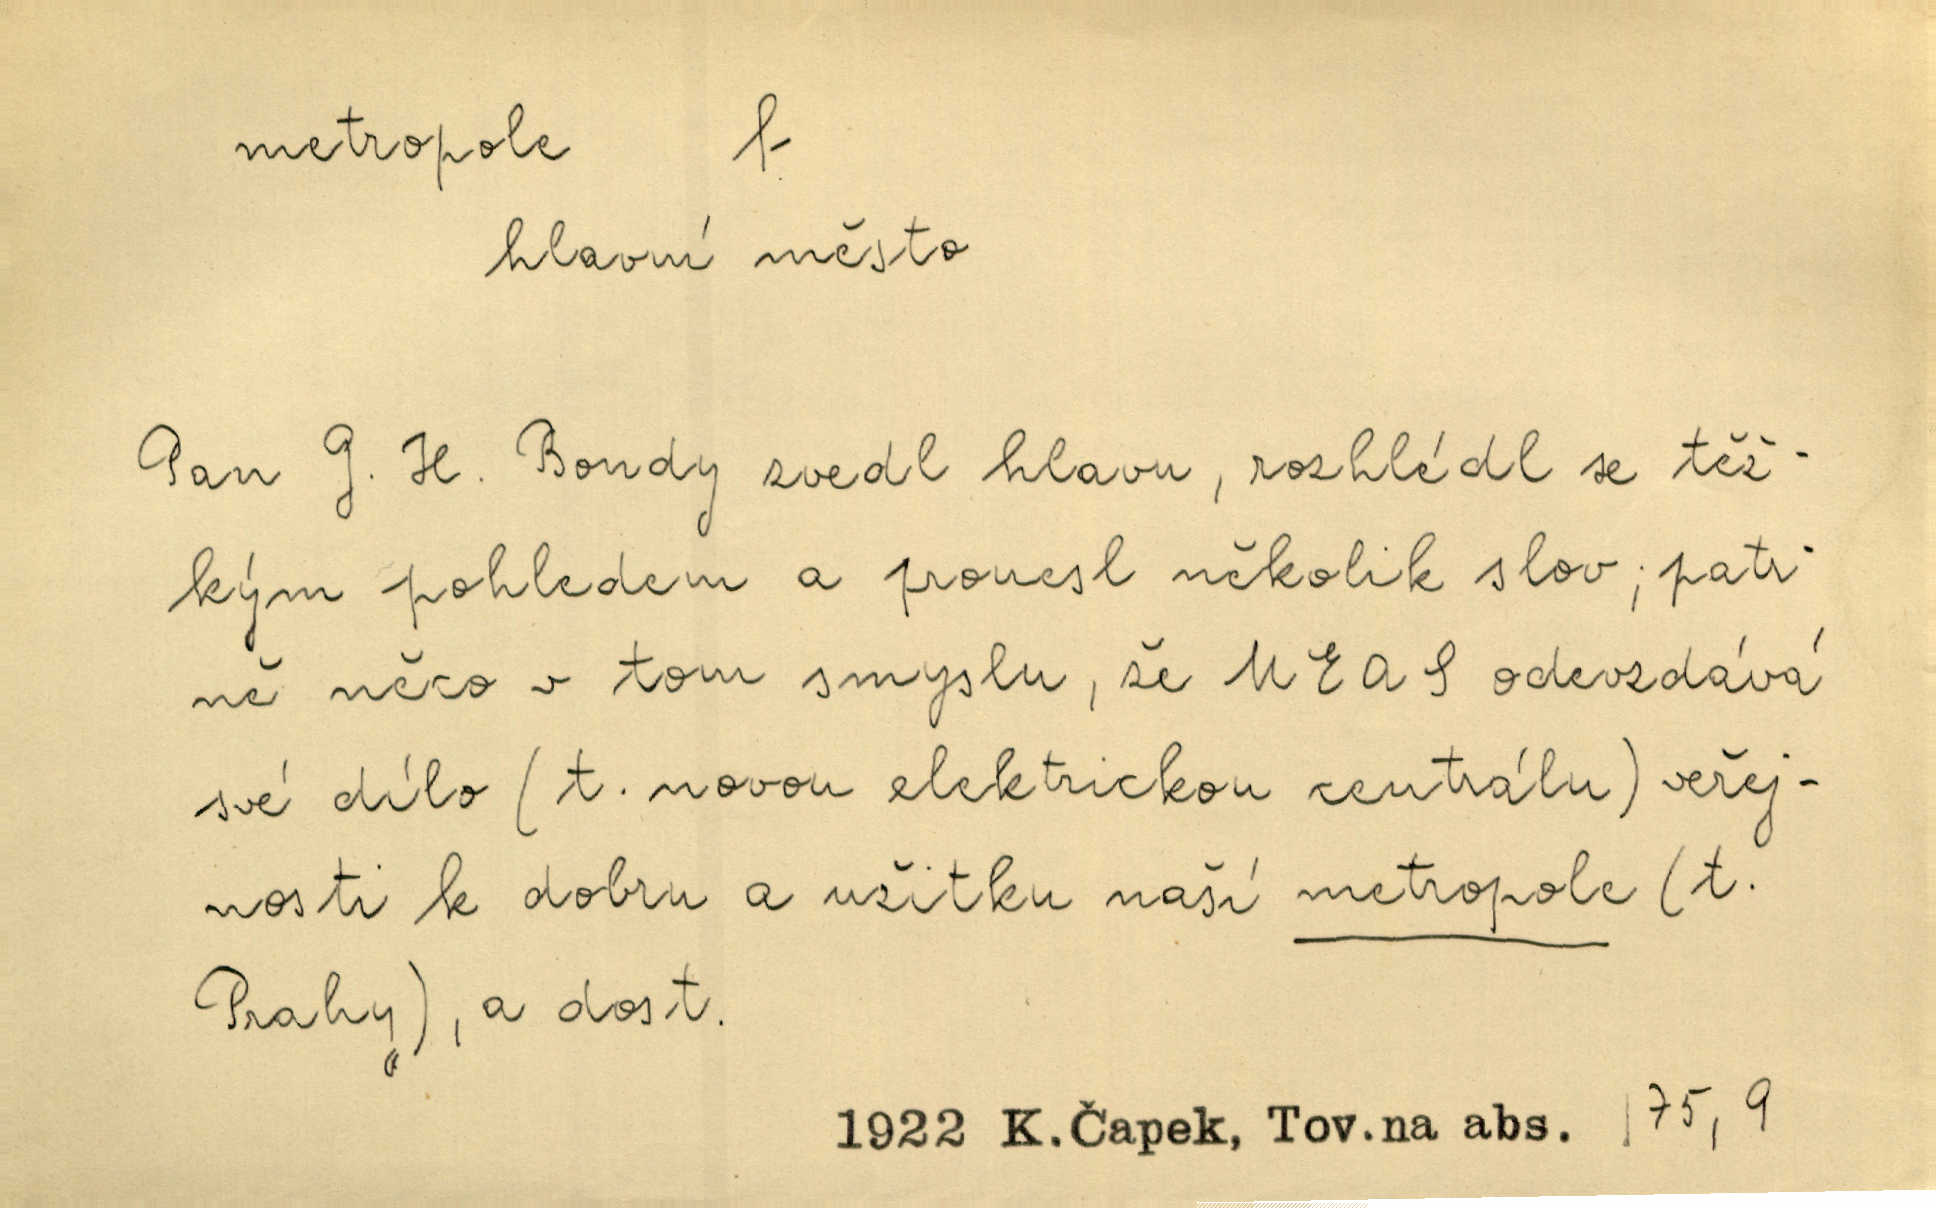 metropole f.
hlavní město
Pan G. H. Bondy zvedl hlavu, rozhlédl se těž-
kým pohledem a pronesl několik slov; patr-
ně něco v tom smyslu, že MEAS odevzdává
své dílo (t. novou elektrickou centrálu) veřej-
nosti k dobru a užitku naší metropole (t.
Prahy), a dost.
1922 K.Čapek, Tov.na abs. 75, 9